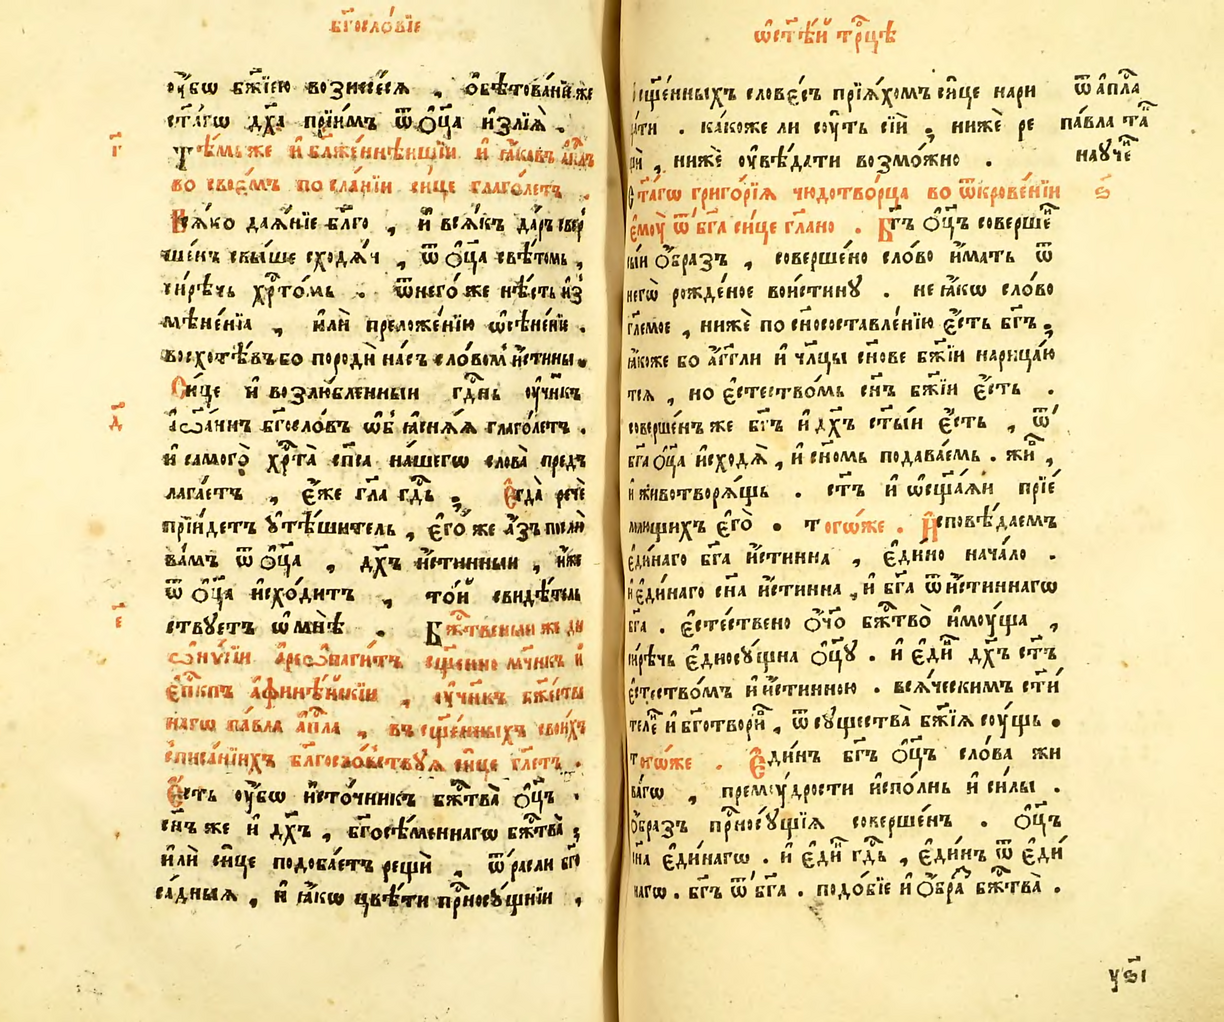 бг҃ослóвїе
ᲂу҆́бѡ бж҃їею вознесе́сѧ , ѡ҆бѣтова́нїе же
ст҃а́гѡ дх҃а прїи́мъ ѿ ѻ҆ц҃а и҆злїѧ̀ .
г҃
тѣ́мь же и҆ бл҃же́ннѣишїи и҆ і҆а́кѡвъ а҆пⷭ҇лъ
во свое́мъ посла́нїи си́це глаго́летъ .
Всѧ́ко даѧ́нїе бл҃го , и҆ всѧ́къ да́ръ свер
ше́нъ свы́ше сходѧ́и , ѿ ѻ҆ц҃а свѣ́томъ ,
си́рѣчь хрⷭ҇то́мъ . ѿ него́ же нѣ́сть и҆з
мѣне́нїѧ , и҆лѝ преложе́нїю ѡ҆сѣне́нїе .
восхотѣ́въ бо породѝ на́съ сло́вомъ и҆́стины .
Си́це и҆ возлю́бленныи гдⷭ҇нь ᲂу҆чн҃къ
д҃
і҆ѡа́ннъ бг҃осло́въ ѡ҆б̾ꙗ҆снѧ́ѧ глаго́летъ .
и҆ самого̀ хрⷭ҇та̀ сп҃са на́шегѡ слова̀ предъ
лага́етъ , є҆́же гл҃а гдⷭ҇ь . Є҆гда̀ речѐ
прїи́детъ ᲂу҆тѣ́шитель , є҆го́ же а҆́зъ послю̀
ва́мъ ѿ ѻ҆ц҃а , дх҃ъ и҆́стинныи , и҆́же
ѿ ѻ҆ц҃а и҆схо́дитъ , то́й свидѣ́тель
е҃
ствуетъ ѡ҆ мнѣ̀ . Бжⷭ҇твеныи же ди
ѡни́сїи а҆реѡпаги́тъ сщ҃енно мч҃нкъ и҆
є҆пⷭ҇кпъ а҆финѣ́йскїи , ᲂу҆чн҃къ бжⷭ҇стве
нагѡ па́вла а҆пⷭ҇ла , въ сщ҃е́нныхъ свои́хъ
списа́нїихъ бл҃госло́вствуѧ си́це гл҃етъ .
Є҆́сть ᲂу҆́бѡ и҆сто́чникъ бжⷭ҇тва̀ ѻ҆ц҃ъ .
сн҃ъ же и҆ дх҃ъ , бг҃осѣ́меннагѡ бжⷭ҇тва̀ ,
и҆лѝ си́це подоба́етъ рещѝ , ѿрасли бг҃о
са́дныѧ , и҆ ꙗ҆́кѡ цвѣ́ти прⷭ҇носу́щнїи ,
ѡ҆ ст҃ѣ́й трⷪ҇цѣ
сщ҃е́нныхъ слове́съ прїѧ́хомъ си́це нари
ѿ а҆пⷭ҇ла
ца́ти . ка́коже ли сᲂу́ть сїѝ , нижѐ ре
па́вла та́
щѝ , нижѐ ᲂу҆вѣ́дати возмо́жно .
науче
Ст҃а́гѡ григо́рїѧ чюдотво́рца во ѿкрове́нїи
ѕ҃
є҆мᲂу̀ ѿ бг҃а си́це гл҃ано . Бг҃ъ ѻ҆ц҃ъ соверше
ныи ѻ҆́бразъ , соверше́но сло́во и҆́мать ѿ
негѡ̀ рожде́ное вои́стину . не ꙗ҆́кѡ сло́во
гл҃емое , нижѐ по сн҃осоставле́нїю є҆́сть бг҃ъ ,
ꙗ҆́коже бо а҆́гг҃ли и҆ чл҃цы сн҃ове бж҃їи нарица́ю
тсѧ , но є҆стество́мъ сн҃ъ бж҃їи є҆́сть .
соверше́нъ же бг҃ъ и҆ дх҃ъ ст҃ы́и є҆́сть , ѿ
бг҃а ѻ҆ц҃а и҆сходѧ̀ , и҆ сн҃омъ подава́емъ . жи ,
и҆ животворѧ́щь . ст҃ъ и҆ ѡ҆сщ҃а́ѧи прїе
млющихъ є҆го̀ . тогѡ́же . И҆сповѣ́даемъ
є҆ди́наго бг҃а и҆́стинна , є҆ди́но нача́ло .
и҆ є҆ди́наго сн҃а и҆́стинна , и҆ бг҃а ѿ и҆́стиннагѡ
бг҃а . є҆сте́ствено ѻ҆́ч҃о бжⷭ҇тво̀ и҆мᲂу́ща ,
си́рѣчь є҆дносᲂу́щна ѻ҆ц҃у . и҆ є҆ди́ дх҃ъ ст҃ъ
є҆стество́мъ и҆ и҆́стинною . всѧ́ческимъ ст҃и
теле́ и҆ бг҃отвори , ѿ сᲂу́щества̀ бж҃їѧ сᲂу́щь .
тогѡ́же . Є҆ди́нъ бг҃ъ ѻ҆ц҃ъ сло́ва жи
ва́гѡ , прему́дрости и҆спо́лнь и҆ си́лы .
ѻ҆́бразъ прⷭ҇носᲂу́щїѧ соверше́нъ . ѻ҆ц҃ъ
сн҃а є҆ди́нагѡ . и҆ є҆ди́ гдⷭ҇ь , є҆ди́нъ ѿ є҆ди́
нагѡ . бг҃ъ ѿ бг҃а . подо́бїе и҆ ѻ҆́бра бжⷭ҇тва̀ .
уѕ҃і